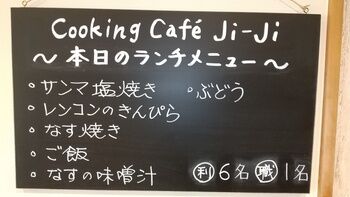 Cooking Café Ji-Ji
～本日のランチメニュー～
○サンマ塩焼き ○ぶどう
○レンコンのきんぴら
○なす焼き
○ご飯
○なすの味噌汁 利6名 職1名